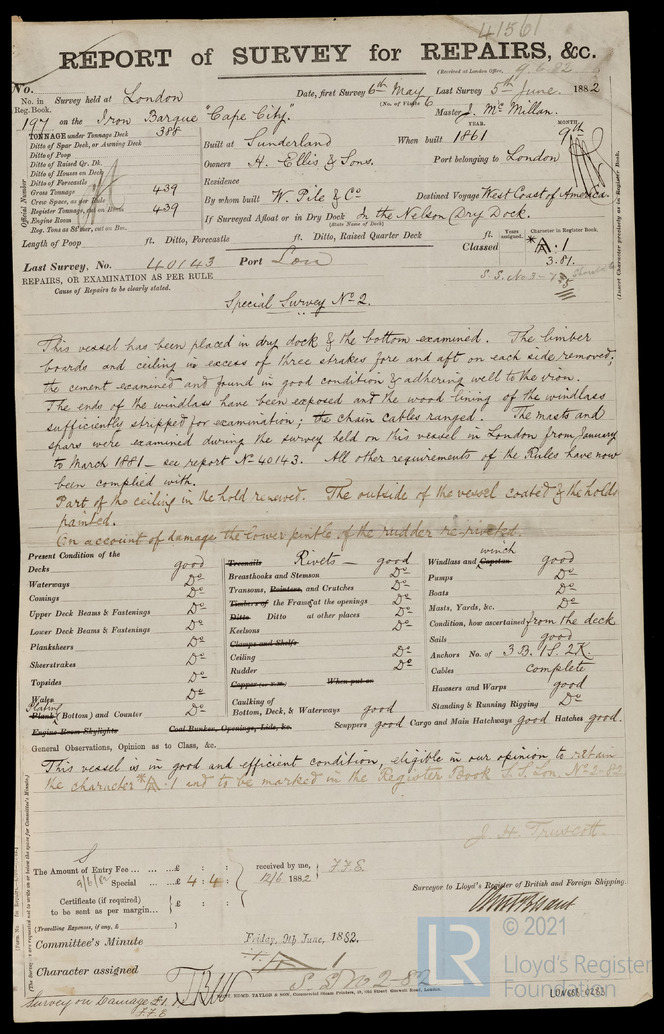 41561
REPORT of SURVEY for REPAIRS, &c.
(Received at London Office, 9.6.82
No.
No. in Reg. Book.
Survey held at London
Date, first Survey 6th May
Last Survey 5th June. 1882
(No. of Visits 6
197 on the Iron Barque "Cape City."
Master J. McMillan.
TONNAGE under Tonnage Deck 388
Ditto of Spar Deck, or Awning Deck
Ditto of Poop
Ditto of Raised Qr. Dk.
Ditto of House on Deck
Ditto of Forecastle
Gross Tonnage 439
Crew Space, as per Rule
Register Tonnage, cut on Beam 439
Engine Room
Reg. Tons as St'mer, cut on Bm.
Official Number
Built at Sunderland
When built YEAR. 1861 MONTH. 9th
Owners H. Ellis & Sons.
Port belonging to London
Residence
By whom built W. Pile & Co
Destined Voyage West Coast of America.
If Surveyed Afloat or in Dry Dock In the Nelson Dry Dock.
(State Name of Dock)
Length of Poop ft. Ditto, Forecastle ft. Ditto, Raised Quarter Deck ft.
Years assigned.
Character in Register Book.
Classed *A.1
3.81.
S.S. No 3-7
Last Survey, No. 40143 Port Lon
REPAIRS, OR EXAMINATION AS PER RULE
Cause of Repairs to be clearly stated.
(Insert Character precisely as in Register Book.
Special Survey No 2.
This vessel has been placed in dry dock & the bottom examined. The limber
boards and ceiling in excess of three strakes fore and aft on each side removed;
the cement examined and found in good condition & adhering well to the iron.
The ends of the windlass have been exposed and the wood lining of the windlass
sufficiently stripped for examination; the chain cables ranged. The masts and
spars were examined during the survey held on this vessel in London from January
to March 1881 - see report No 40143. All other requirements of the Rules have now
been complied with.
Part of the ceiling in the hold renewed. The outside of the vessel coated & the holds
painted.
On account of damage the lower pintle of the rudder re-riveted.
Present Condition of the
Decks good
Waterways Do
Comings Do
Upper Deck Beams & Fastenings Do
Lower Deck Beams & Fastenings Do
Planksheers Do
Sheerstrakes Do
Topsides Do
Wales Do
Plating
Plank (Bottom) and Counter Do
Engine Room Skylights
Coal Bunker, Openings, Lids, &c.
Treenails Rivets - good
Breasthooks and Stemson Do
Transoms, Pointers, and Crutches Do
Timbers of the Frames at the openings Do
Ditto Ditto at other places Do
Keelsons Do
Clamps and Shelfs
Ceiling Do
Rudder Do
Copper (or Y.M.) When put on
Caulking of
Bottom, Deck, & Waterways good
Scuppers good Cargo and Main Hatchways good Hatches good.
winch
Windlass and Capstan good
Pumps Do
Boats Do
Masts, Yards, &c. Do
Condition, how ascertained from the deck
Sails good
Anchors No. of 3 B. 1 S. 2 K.
Cables complete
Hawsers and Warps good
Standing & Running Rigging Do
General Observations, Opinion as to Class, &c.
This vessel is in good and efficient condition, eligible in our opinion to retain
the character *A.1 and to be marked in the Register Book S.S. Lon. No 2-82
J. H. Truscott.
The Amount of Entry Fee £ : :
9/6/82 Special £ 4 : 4 :
received by me, F.F.E.
12/6 1882
Certificate (if required)
to be sent as per margin £ : :
(Travelling Expenses, if any, £ )
Surveyor to Lloyd's Register of British and Foreign Shipping.
Committee's Minute Friday, 9th June, 1882.
Character assigned A 1
S.S. No 2-82
EDMD. TAYLOR & SON, Commercial Steam Printers, London.
Survey on Damage £1
F.F.E
LR
© 2021
Lloyd's Register
Foundation